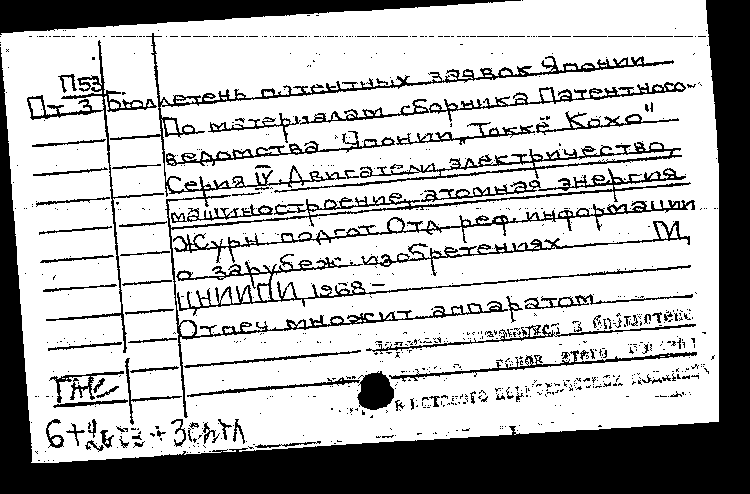 П53
Пт 3 Бюллетень патентных заявок Японии
По материалам сборника Патентного
ведомства Японии „Токкё Кохо"
Серия IV. Двигатели, электричество,
машиностроение, атомная энергия
Журн. подгот. Отд. реф. информации
о зарубеж. изобретениях М,
ЦНИИПИ, 1968-
Отпеч. множит. аппаратом
имеющихся в библиотеке
этого
каталоге периодических изданий
6+